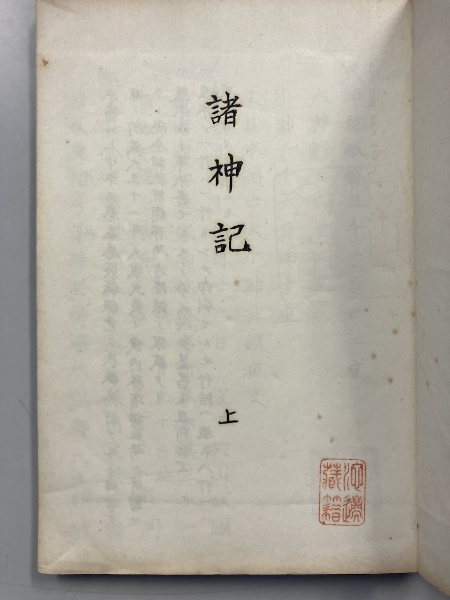 諸神記
上
藏籍